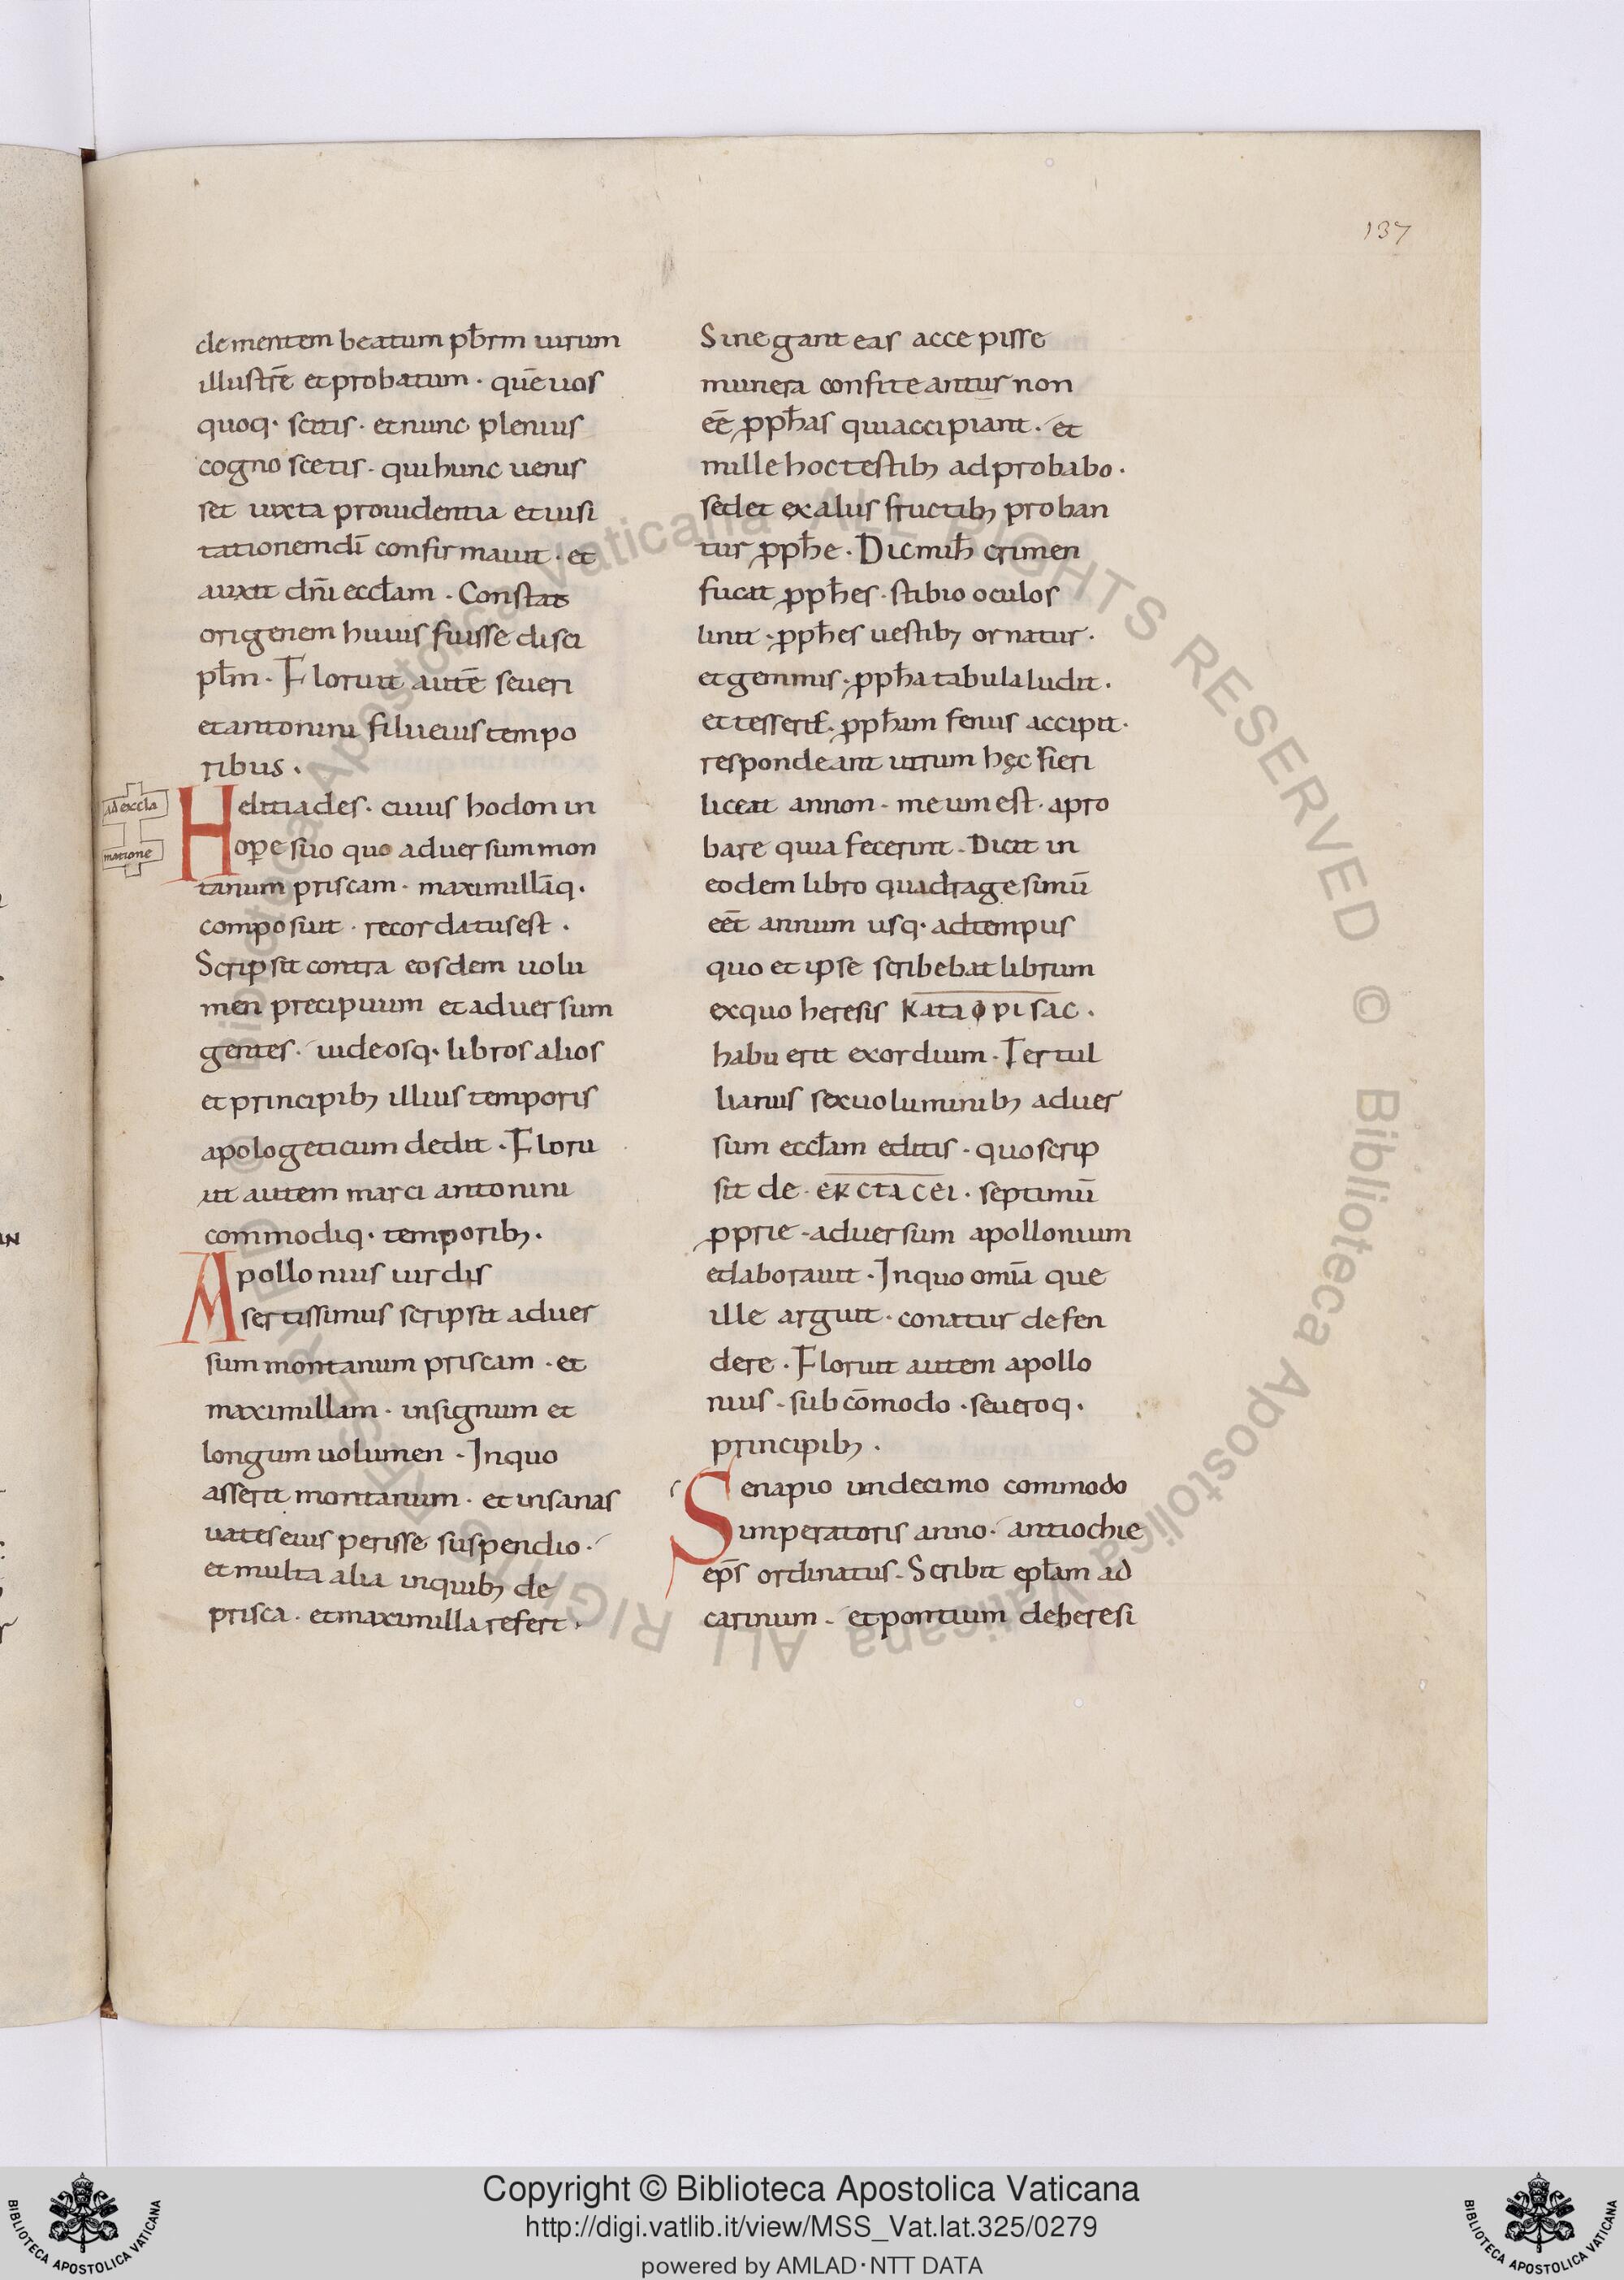 137
clementem beatum pb̄rm uirum
illustrē et probatum · quē uos
quoq· scitis · et nunc plenius
cognoscetis · qui hunc uenis
set iuxta prouidentia et uisi
tationem dī confirmauit · et
auxit dn̄i eccl̄am · Constat
origenem huius fuisse disci
pl̄m · Floruit autē seueri
et antonini filii eius tempo
ribus ·
ad excla
matione
Helitiades · cuius hodon in
ope suo quo aduersum mon
tanum priscam · maximillāq·
composuit · recordatus est ·
Scripsit contra eosdem uolu
men precipuum et aduersum
gentes · iudeosq· libros alios
et principib; illius temporis
apologeticum dedit · Floru
it autem marci antonini
commodiq· temporib; ·
Apollonius uir dis
sertissimus scripsit aduer
sum montanum priscam · et
maximillam · insignum et
longum uolumen · Inquo
asserit montanum · et insanas
uates eius perisse suspendio ·
et multa alia inquib; de
prisca · et maximilla refert ·
Si negant eas accepisse
munera confiteantur non
eē̄ ꝓph̄as qui accipiant · et
mille hoc testib; adprobabo ·
sed et ex aliis fructib; proban
tur ꝓph̄e · Dic mih̄ crimen
fucat ꝓph̄es · stibio oculos
linit · ꝓph̄es uestib; ornatur ·
et gemmis · ꝓph̄a tabula ludit ·
et tesserif · ꝓph̄im fenus accipit ·
respondeant utrum hęc fieri
liceat annon · meum est · apro
bare quia fecerint · Dicit in
eodem libro quadragesimū
eēt annum usq· ad tempus
quo et ipse scribebat librum
exquo heresis kataϕpisac ·
habuerit exordium · Tertul
lianus sex uoluminib; aduer
sum eccl̄am editis · quo scrip
sit de · ekctacei · septimū
ꝓprie · aduersum apollonium
elaborauit · Inquo omīa que
ille arguit · conatur defen
dere · Floruit autem apollo
nius · sub cōmodo · seueroq·
principib; ·
Senapio undecimo commodo
imperatoris anno · antiochie
ep̄s ordinatus · Scribit epl̄am ad
carinum · et pontium de heresi
Copyright © Biblioteca Apostolica Vaticana
http://digi.vatlib.it/view/MSS_Vat.lat.325/0279
powered by AMLAD·NTT DATA
BIBLIOTECA APOSTOLICA VATICANA
BIBLIOTECA APOSTOLICA VATICANA
Biblioteca Apostolica Vaticana ALL RIGHTS RESERVED © Biblioteca Apostolica Vaticana ALL RIGHTS RESERVED ©